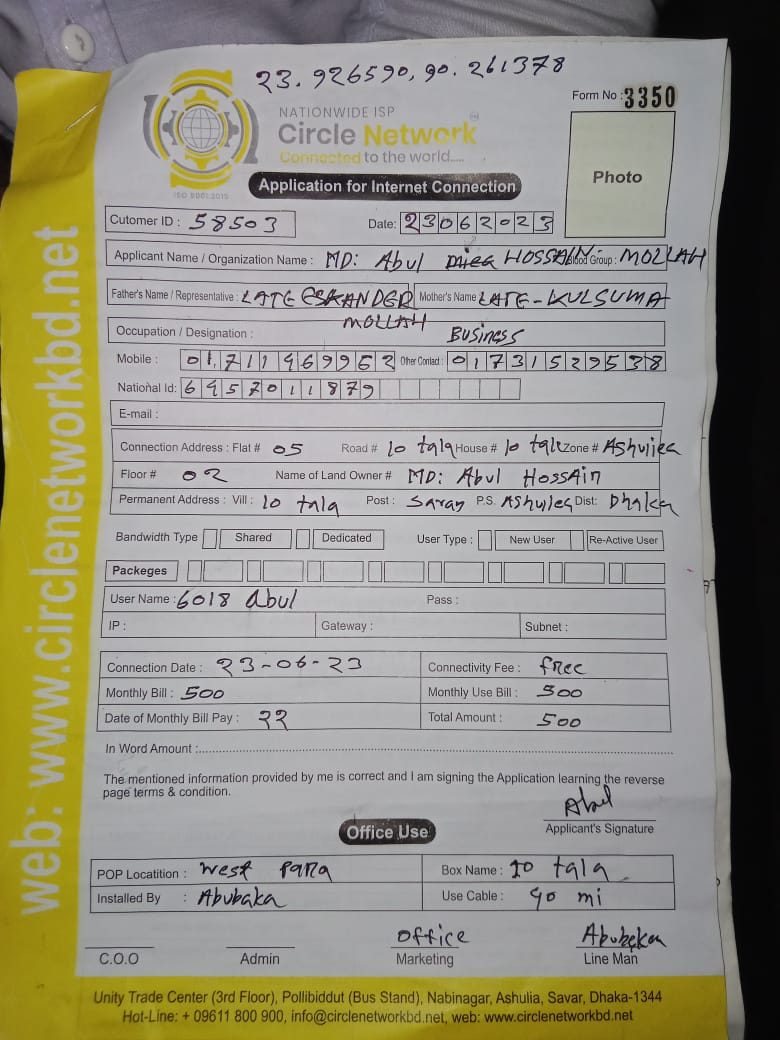 23.926590, 90.261378
Form No : 3350
NATIONWIDE ISP
Circle Network
Connected to the world.....
ISO 9001:2015
Photo
Application for Internet Connection
Cutomer ID : 58503 Date: 23062023
Applicant Name / Organization Name : MD: Abul Miea HOSSAIN Blood Group : MOLLAH
Father's Name / Representative : LATE ESKANDER MOLLAH Mother's Name LATE-KULSUMA
Occupation / Designation : Business
Mobile : 01711969962 Other Contact : 01731529538
National Id: 6957011879
E-mail :
Connection Address : Flat # 05 Road # 10 tala House # 10 tala Zone # Ashuliea
Floor # 02 Name of Land Owner # MD: Abul HossAin
Permanent Address : Vill : 10 tala Post : Savar P.S. Ashuliea Dist: Dhaka
Bandwidth Type Shared Dedicated User Type : New User Re-Active User
Packeges
User Name : 6018 Abul Pass :
IP : Gateway : Subnet :
Connection Date : 23-06-23 Connectivity Fee : free
Monthly Bill : 500 Monthly Use Bill : 500
Date of Monthly Bill Pay : 22 Total Amount : 500
In Word Amount :
The mentioned information provided by me is correct and I am signing the Application learning the reverse
page terms & condition.
Abul
Applicant's Signature
Office Use
POP Locatition : west para Box Name : 10 tala
Installed By : Abubaka Use Cable : 90 mi
office Abubakar
C.O.O Admin Marketing Line Man
Unity Trade Center (3rd Floor), Pollibiddut (Bus Stand), Nabinagar, Ashulia, Savar, Dhaka-1344
Hot-Line: + 09611 800 900, info@circlenetworkbd.net, web: www.circlenetworkbd.net
web: www.circlenetworkbd.net